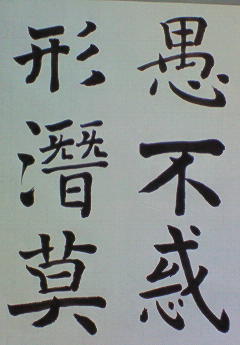 愚不惑
形潛莫